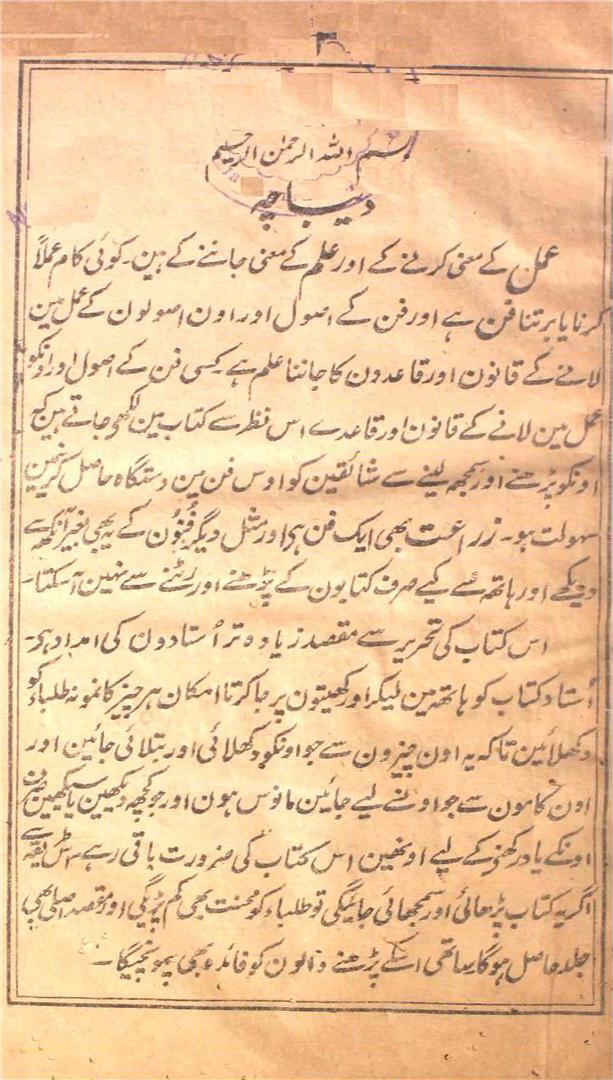 ۳
بسم اللہ الرحمٰن الرحیم
دیباچہ
عمل کے معنی کرنے کے اور علم کے معنی جاننے کے ہین۔ کوئی کام عملاً
کرنا یا برتنا فن ہے اور فن کے اصول اور اون اصولون کے عمل مین
لانے کے قانون اور قاعدون کا جاننا علم ہے۔ کسی فن کے اصول اور اونکو
عمل مین لانے کے قانون اور قاعدے اس نظر سے کتاب مین لکھو جاتے ہین کہ
اونکو پڑھنے اور سمجھ لینے سے شائقین کو اوس فن مین دستگاہ حاصل کرنیمین
سہولت ہو۔ زراعت بھی ایک فن ہی اور مثل دیگر فنون کے یہ بھی بغیر آنکھ سے
دیکھے اور ہاتھ سے کیے صرف کتابون کے پڑھنے اور رٹنے سے نہین آسکتا۔
اس کتاب کی تحریر سے مقصد زیادہ تر اُستادون کی امداد ہی۔
اُستاد کتاب کو ہاتھ مین لیکر اور کھیتون پر جا کر تا امکان ہر چیز کا نمونہ طلباء کو
دکھلائین تاکہ یہ اون چیزون سے جو اونکو دکھلائی اور بتلائی جائین اور
اون کامون سے جو اونسے لیے جائین مانوس ہون اور جو کچھ دیکھین یا سیکھین صرف
اونکے یاد رکھنے کے لیے اونھین اس کتاب کی ضرورت باقی رہے۔ اس طریقہ سے
اگر یہ کتاب پڑھائی اور سمجھائی جائیگی تو طلباء کو محنت بھی کم پڑیگی اور مقصد اصلی بھی
جلد حاصل ہوگا ساتھی اسکے پڑھنے والون کو فائدہ بھی پہونچیگا۔